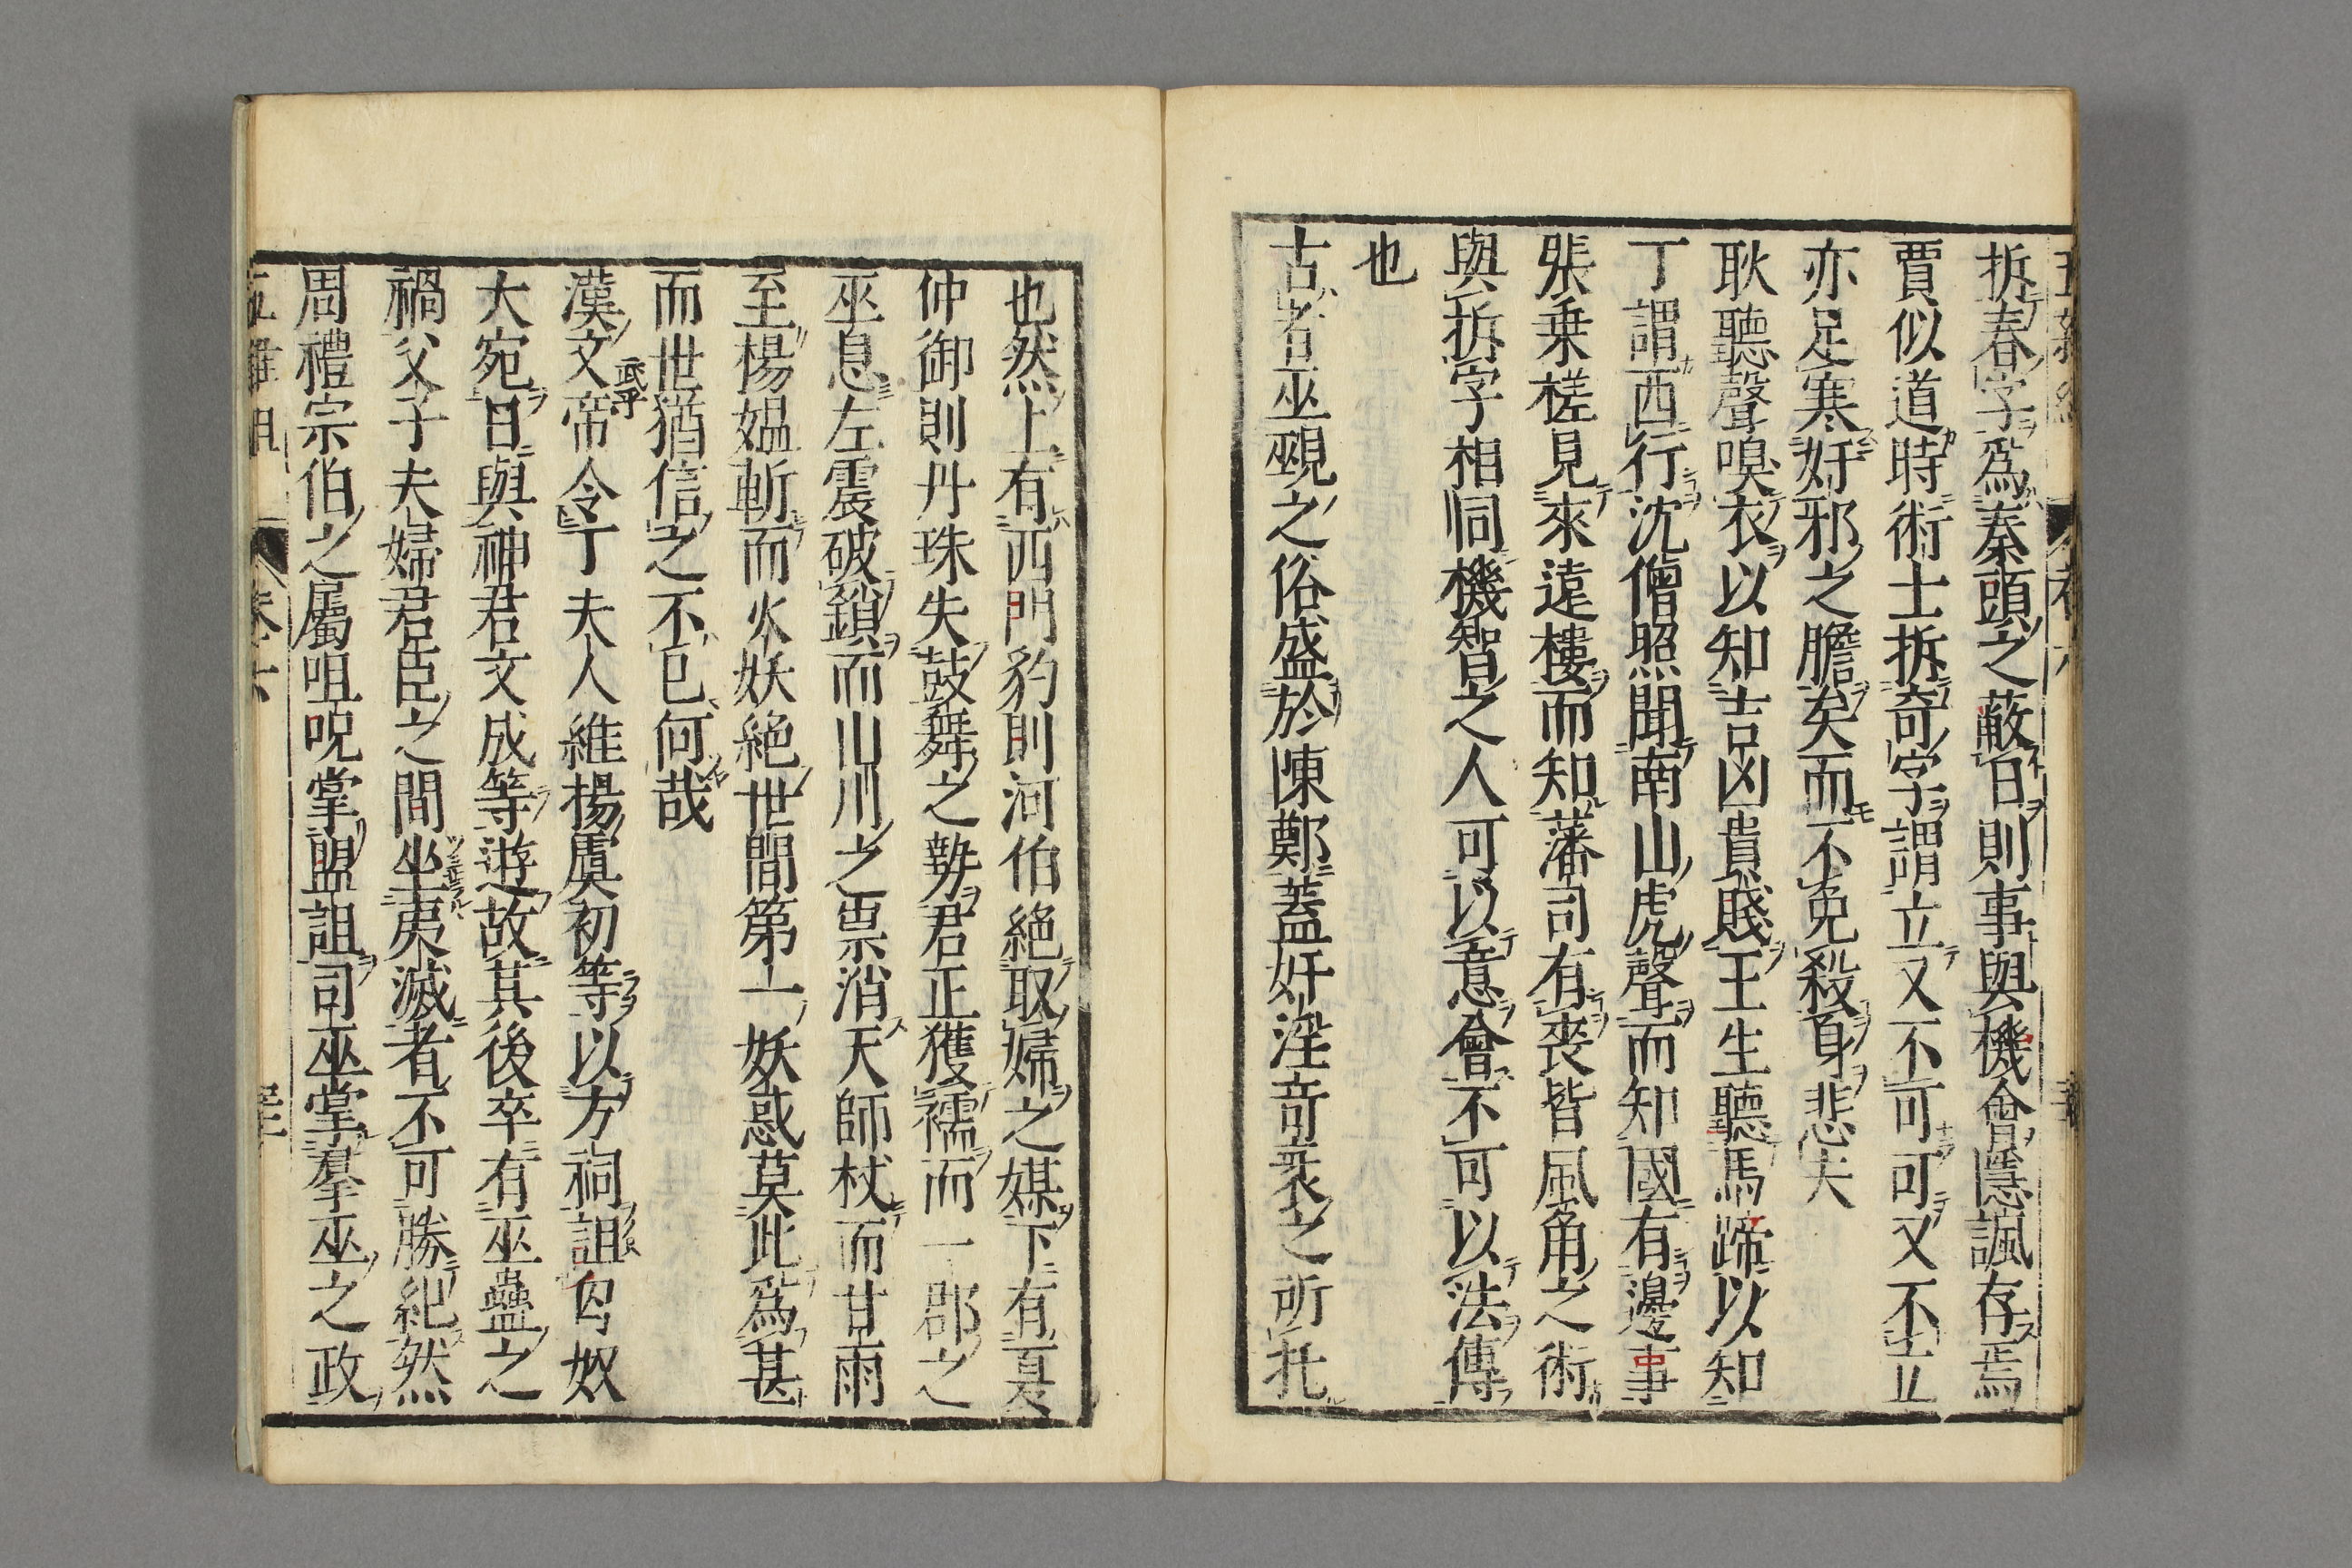 拆春字爲秦頭之蔽日則事與機會隱諷存焉
賈似道時術士拆奇字謂立又不可可又不立
亦足寒奸邪之膽矣而不免殺身悲夫
耿聽聲嗅衣以知吉凶貴賤王生聽馬蹄以知
丁謂西行沈僧照聞南山虎聲而知國有邊事
張乗槎見來遠樓而知藩司有喪皆風角之術
與拆字相同機智之人可以意會不可以法傳
也
古者巫覡之俗盛於陳鄭蓋奸淫竒衺之所托
也然上有西門豹則河伯絕取婦之媒下有夏
仲御則丹珠失鼓舞之勢君正獲襦而一郡之
巫息左震破鎖而山川之祟消天師杖而甘雨
至楊媼斬而火妖絕世間第一妖惑莫此爲甚
而世猶信之不已何哉
漢文帝令丁夫人維揚虞初等以方祠詛匈奴
武乎
大宛日與神君文成等遊故其後卒有巫蠱之
禍父子夫婦君臣之間坐夷滅者不可勝紀然
周禮宗伯之屬咀呪掌盟詛司巫掌羣巫之政
五雜俎
卷六